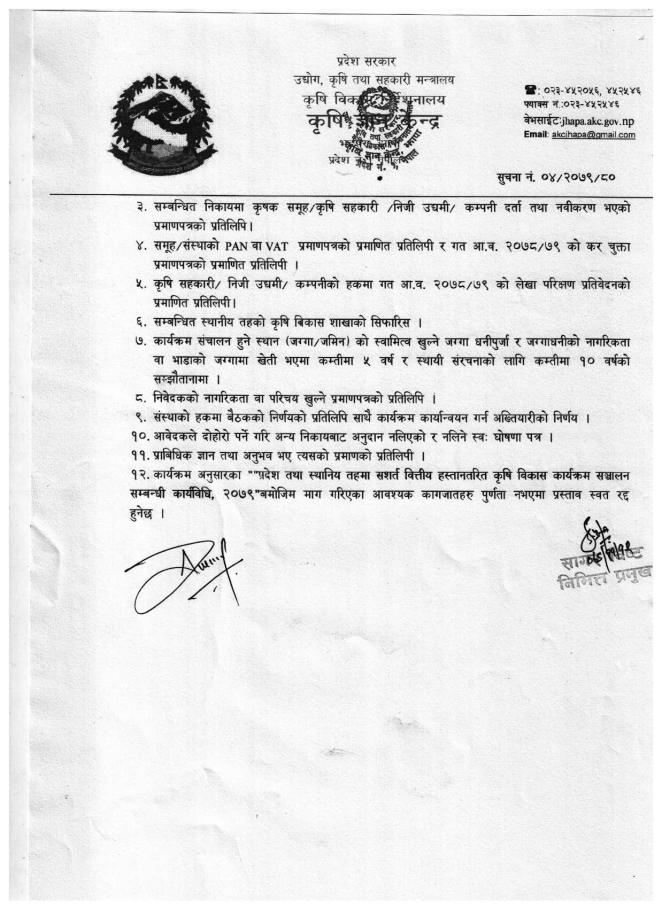 प्रदेश सरकार
उद्योग, कृषि तथा सहकारी मन्त्रालय
कृषि विकास निर्देशनालय
कृषि ज्ञान केन्द्र
प्रदेश
☎: ०२३-४५२०५६, ४५२५४६
फ्याक्स नं.:०२३-४५२५४६
वेभसाईट:jhapa.akc.gov.np
Email: akcjhapa@gmail.com
सुचना नं. ०४/२०७९/८०
३. सम्बन्धित निकायमा कृषक समूह/कृषि सहकारी /निजी उद्यमी/ कम्पनी दर्ता तथा नवीकरण भएको
प्रमाणपत्रको प्रतिलिपि।
४. समूह/संस्थाको PAN वा VAT प्रमाणपत्रको प्रमाणित प्रतिलिपी र गत आ.व. २०७८/७९ को कर चुक्ता
प्रमाणपत्रको प्रमाणित प्रतिलिपी ।
५. कृषि सहकारी/ निजी उद्यमी/ कम्पनीको हकमा गत आ.व. २०७८/७९ को लेखा परिक्षण प्रतिवेदनको
प्रमाणित प्रतिलिपी।
६. सम्बन्धित स्थानीय तहको कृषि बिकास शाखाको सिफारिस ।
७. कार्यक्रम संचालन हुने स्थान (जग्गा/जमिन) को स्वामित्व खुल्ने जग्गा धनीपुर्जा र जग्गाधनीको नागरिकता
वा भाडाको जग्गामा खेती भएमा कम्तीमा ५ वर्ष र स्थायी संरचनाको लागि कम्तीमा १० वर्षको
सम्झौतानामा ।
८. निवेदकको नागरिकता वा परिचय खुल्ने प्रमाणपत्रको प्रतिलिपि ।
९. संस्थाको हकमा बैठकको निर्णयको प्रतिलिपि साथै कार्यक्रम कार्यान्वयन गर्न अख्तियारीको निर्णय ।
१०. आवेदकले दोहोरो पर्ने गरि अन्य निकायबाट अनुदान नलिएको र नलिने स्वः घोषणा पत्र ।
११. प्राविधिक ज्ञान तथा अनुभव भए त्यसको प्रमाणको प्रतिलिपी ।
१२. कार्यक्रम अनुसारका ""प्रदेश तथा स्थानिय तहमा सशर्त वित्तीय हस्तानतरित कृषि विकास कार्यक्रम सञ्चालन
सम्बन्धी कार्यविधि, २०७९"बमोजिम माग गरिएका आवश्यक कागजातहरु पुर्णता नभएमा प्रस्ताव स्वत रद्द
हुनेछ ।
निमित्त प्रमुख